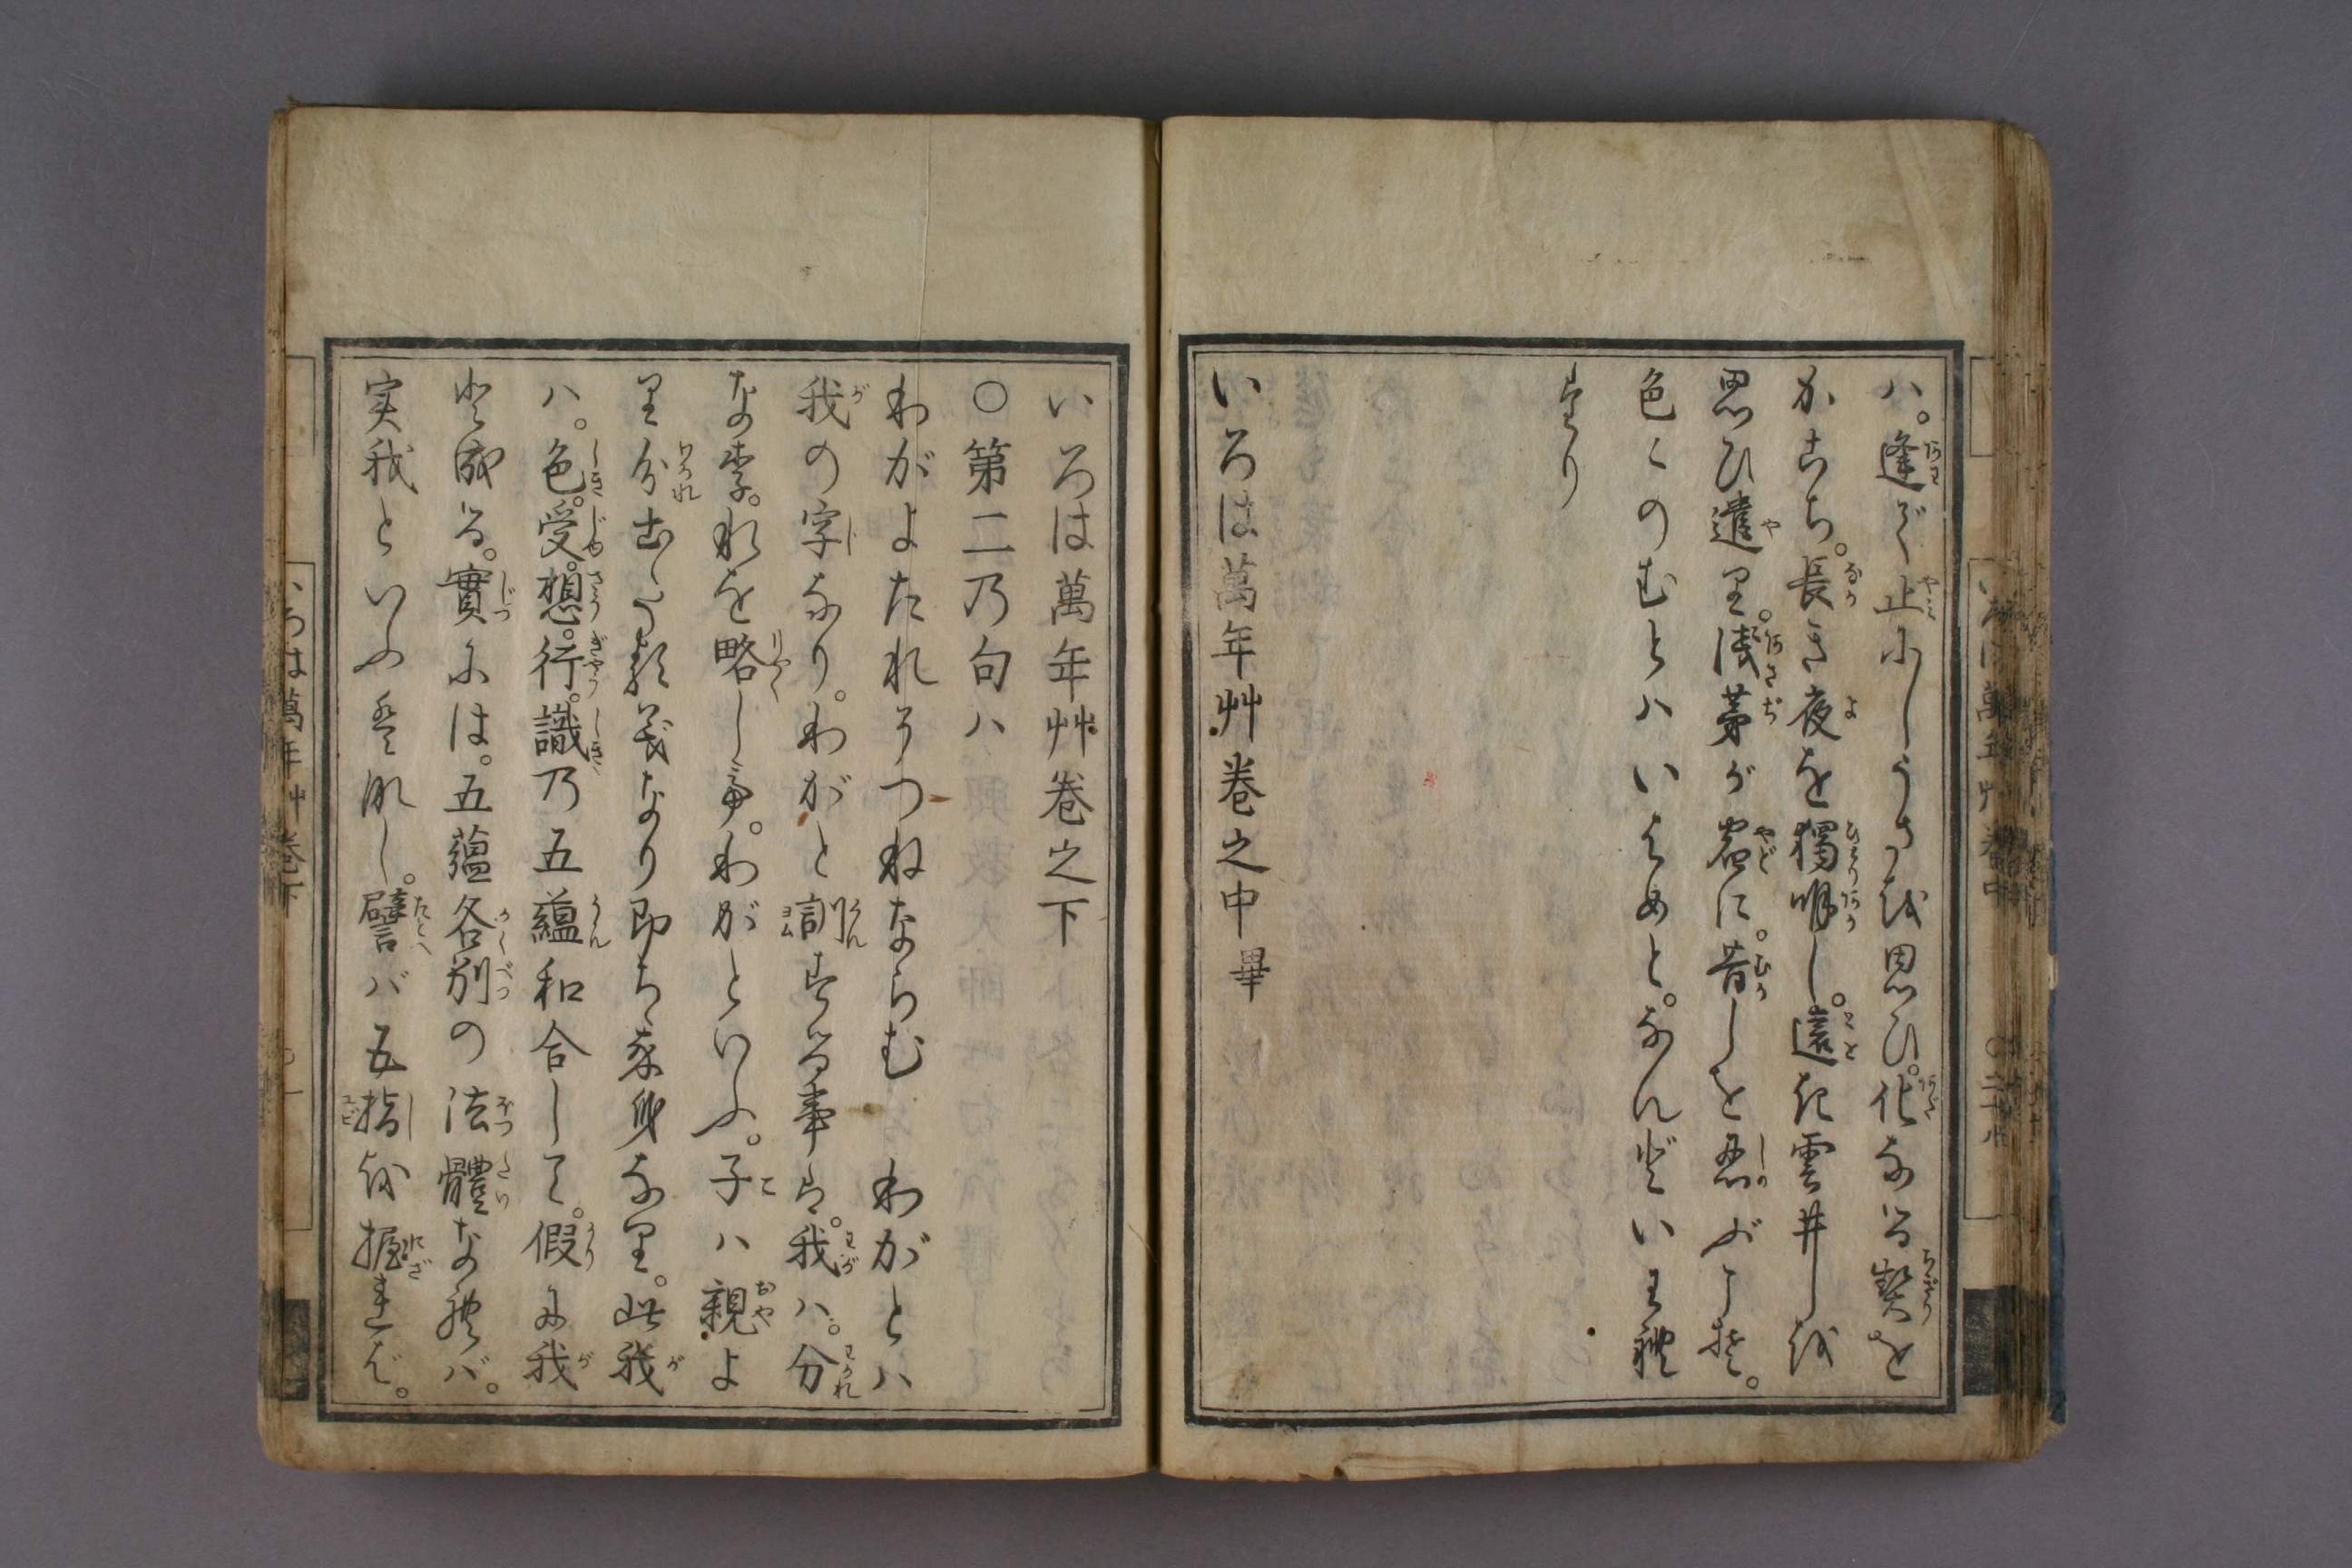 ハ。逢で止にしうさを思ひ。化なる契を
かこち。長き夜を獨明し。遠き雲井を
思ひ遣り。浅茅が宿に。昔しを忍ぶこそ。
色このむとハいはめと。なんどいわれ
たり
いろは萬年艸巻之中畢
いろは萬年艸巻之下
○第二乃句ハ
わがよたれそつねならむ　わがとハ
我の字なり。わがと訓する事は。我ハ。分
なり。れを略して。わがといふ。子ハ親よ
り分出たる義なり即ち身なり。此我
ハ。色。受。想。行。識乃五蘊和合して。假に我
と成る。實には。五蘊各別の法體なれバ。
実我といふ者無し。譬バ五指を握れば。